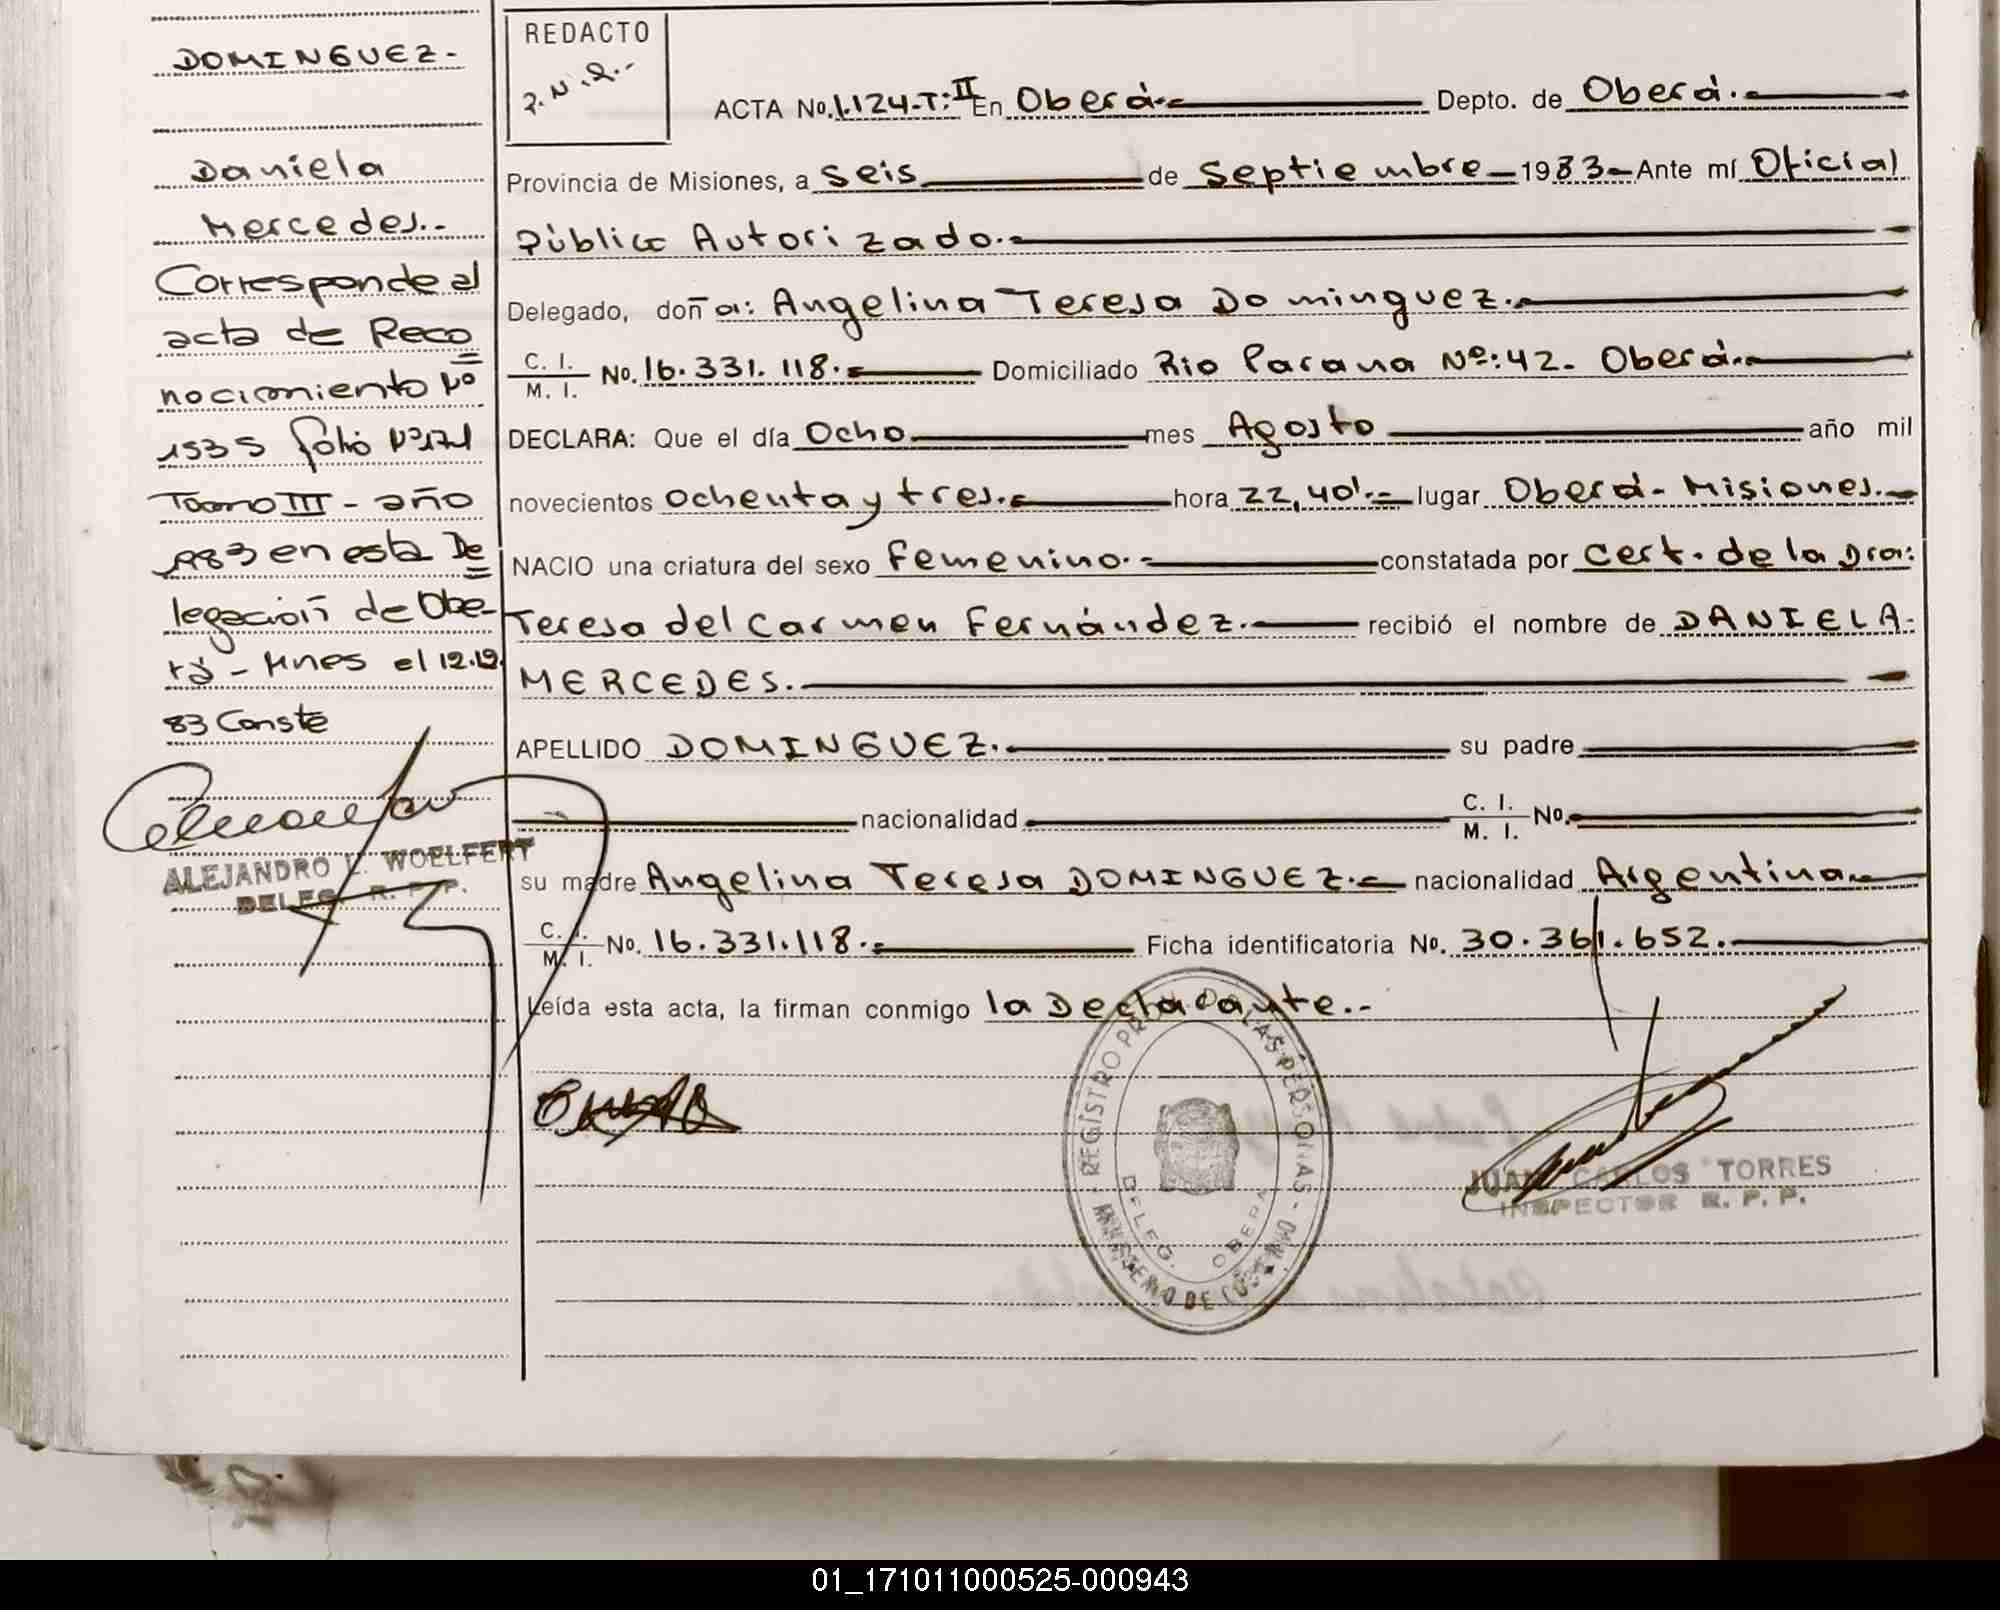 DOMINGUEZ.-
Daniela
Mercedes.-
Corresponde al
acta de Reco
nocimiento Nº
1535 folio Nº171
Tomo III - año
1983 en esta De
legación de Obe-
rá - Mnes el 12.12.
83 Conste
ALEJANDRO L. WOELFERT
DELEG. R. P. P.
REDACTO
ACTA No. 1.124-T: II En Oberá.- Depto. de Oberá.-
Provincia de Misiones, a seis de Septiembre - 1983 - Ante mí Oficial
Público Autorizado.-
Delegado, doña: Angelina Teresa Dominguez.-
C. I. / M. I. No. 16.331.118.- Domiciliado Rio Parana Nº:42- Oberá.-
DECLARA: Que el día Ocho mes Agosto año mil
novecientos ochenta y tres.- hora 22,40'.- lugar Oberá - Misiones.-
NACIO una criatura del sexo Femenino.- constatada por Cert. de la Dra:
Teresa del Carmen Fernández.- recibió el nombre de DANIELA-
MERCEDES.-
APELLIDO DOMINGUEZ.- su padre
nacionalidad C. I. / M. I. No.
su madre Angelina Teresa DOMINGUEZ.- nacionalidad Argentina-
C. I. / M. I. No. 16.331.118.- Ficha identificatoria No. 30.361.652.-
Leída esta acta, la firman conmigo la Declarante.-
REGISTRO PROV. DE LAS PERSONAS
DELEG. OBERA
JUAN CARLOS TORRES
INSPECTOR R. P. P.
01_171011000525-000943